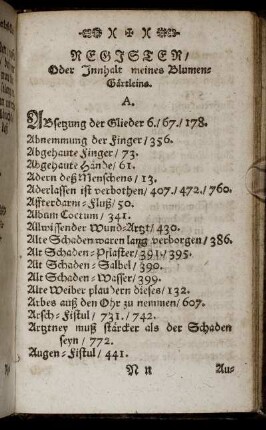 REGISTER/
Oder Innhalt meines Blumen-
Gärtleins.
A.
ABsetzung der Glieder 6./67./178.
Abnemmung der Finger/356.
Abgehaute Finger/73.
Abgehaute Hände/61.
Adern deß Menschens/13.
Aderlassen ist verbothen/407./472./760.
Affterdarm-Fluß/50.
Album Coctum/341.
Allwissender Wund-Artzt/430.
Alte Schaden waren lang verborgen/386.
Alt Schaden-Pflaster/391./395.
Alt Schaden-Salbel/390.
Alt Schaden-Wasser/399.
Alte Weiber plaudern dieses/132.
Arbes auß den Ohr zu nemmen/607.
Arsch-Fistul/731./742.
Artztney muß stärcker als der Schaden
seyn/772.
Augen-Fistul/441.
N n Au-